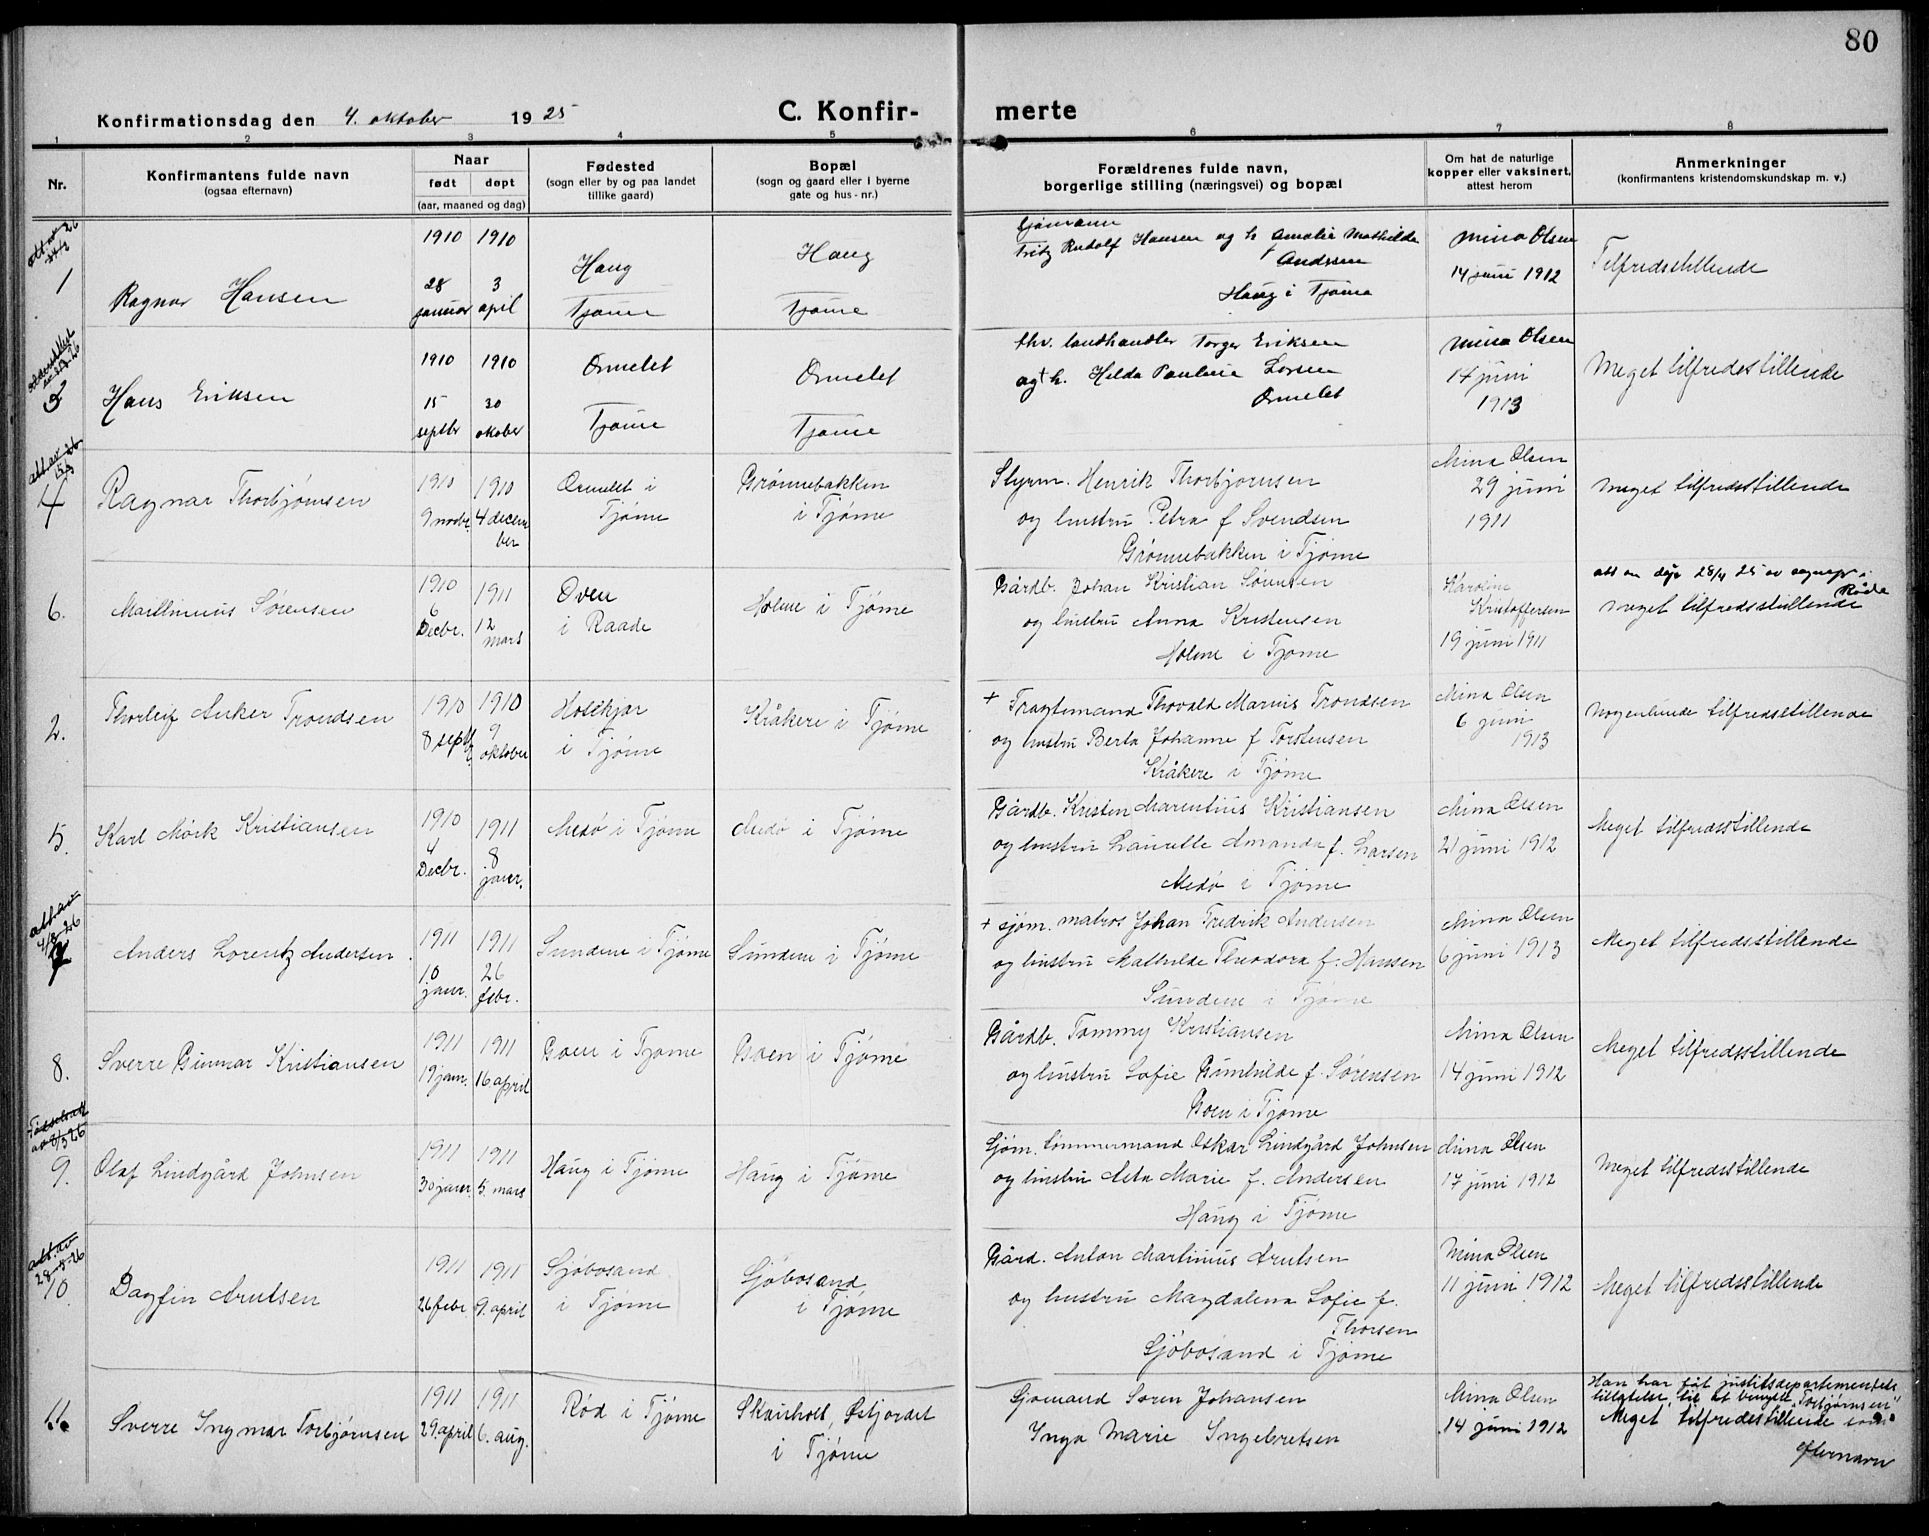 80
Konfirmationsdag den 4. oktober 1925
C. Konfirmerte
1 2 3 4 5 6 7 8
Nr.
Konfirmantens fulde navn
(ogsaa efternavn)
Naar
født døpt
(aar, maaned og dag)
Fødested
(sogn eller by og paa landet
tillike gaard)
Bopæl
(sogn og gaard eller i byerne
gate og hus-nr.)
Forældrenes fulde navn,
borgerlige stilling (næringsvei) og bopæl
Om hat de naturlige
kopper eller vaksinert,
attest herom
Anmerkninger
(konfirmantens kristendomskundskap m. v.)
1
Ragnar Hansen
1910 28 januar
1910 3 april
Haug
Tjøme
Haug
Tjøme
Sjømann
Fritz Rudolf Hansen og h. Amalie Mathilde
Andssen
Haug i Tjøme
Mina Olsen
14 juni 1912
Tilfredsstillende
3
Hans Eriksen
1910 15 septbr
1910 30 oktober
Ormelet
Tjøme
Ormelet
Tjøme
fhv. landhandler Torger Eriksen
og h. Hilda Pauline Lorsen
Ormelet
Mina Olsen
14 juni
1913
Meget tilfredsstillende
att. av
4
Ragnar Thorbjørnsen
1910 9 novbr.
1910 4 december
Ormelet i
Tjøme
Grønnebakken
i Tjøme
Styrm. Henrik Thorbjørnsen
og hustru Petra f. Svendsen
Grønnebakken i Tjøme
Mina Olsen
29 juni
1911
Meget tilfredsstillende
6.
Marthinius Sørensen
1910 6 Decbr.
1911 12 mars
Oven
i Raade
Holme i Tjøme
Gårdb. Johan Kristian Sørensen
og hustru Anna Kristensen
Holme i Tjøme
Karoline
Kristoffersen
19 juni 1911
Råde
Meget tilfredsstillende
2.
Thorleif Anker Trondsen
1910 8 septb.
1910 9 oktober
Holtekjær
i Tjøme
Kråkere i Tjøme
+ Fragtemand Thovald Marius Trondsen
og hustru Berta Johanne f. Torstensen
Kråkere i Tjøme
Mina Olsen
6 juni
1913
Nogenlunde tilfredsstillende
5.
Karl Mørk Kristiansen
1910 4 Decbr.
1911 8 januar.
Medø i Tjøme
Medø i Tjøme
Gårdb. Kristen Marentius Kristiansen
og hustru Laurelle Amanda f. Larsen
Medø i Tjøme
Mina Olsen
21 juni 1912
Meget tilfredsstillende
att. av
4/8-26
7
Anders Lorentz Andersen
1911 10 januar.
1911 26 febr.
Sundene i Tjøme
Sundene i Tjøme
+ sjøm. matros Johan Fredrik Andersen
og hustru Mathilde Theodora f. Hanssen
Sundene i Tjøme
Mina Olsen
6 juni 1913
Meget tilfredsstillende
8.
Sverre Gunnar Kristiansen
1911 19 jan.
1911 16 april
Goen i Tjøme
Goen i Tjøme
Gårdb. Tommy Kristiansen
og hustru Sofie Gunhilde f. Sørensen
Goen i Tjøme
Mina Olsen
14 juni 1912
Meget tilfredsstillende
9.
Olaf Lindgård Johnsen
1911 30 januar.
1911 5. mars
Haug i Tjøme
Haug i Tjøme
Sjøm. tømmermand Oskar Lindgård Johnsen
og hustru Asta Marie f. Andersen
Haug i Tjøme
Mina Olsen
17 juni 1912
Meget tilfredsstillende
att. av
28-8-26
10
Dagfin Arntsen
1911 26 febr.
1911 9. april
Sjøbosand
i Tjøme
Sjøbosand
i Tjøme
Gård. Anton Martinius Arntsen
og hustru Magdalena Sofie f.
Thorsen
Sjøbosand i Tjøme
Mina Olsen
11 juni 1912
Meget tilfredsstillende
11.
Sverre Ingmar Torbjørnsen
1911 29. april
1911 6. aug.
Rød i Tjøme
Skarholt, Østjordet
i Tjøme
Sjømand Soren Johansen
Inga Marie Ingebretsen
Mina Olsen
14 juni 1912
Han har fåt justitsdepartementets
tillatelse til at benytte "Torbjørnsen"
Meget tilfredsstillende som
efternavn